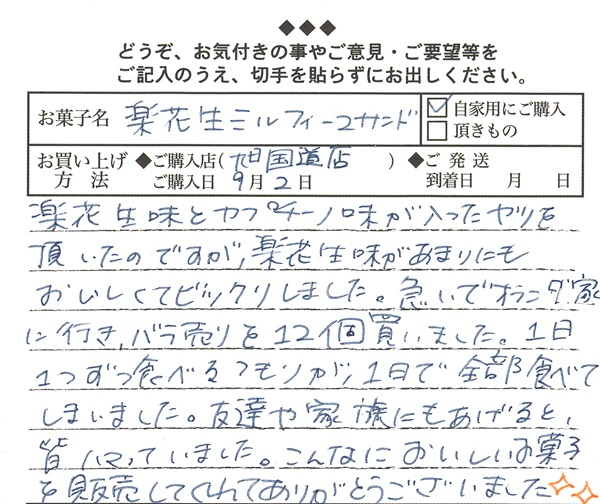 ◆◆◆
どうぞ、お気付きの事やご意見・ご要望等を
ご記入のうえ、切手を貼らずにお出しください。
お菓子名 楽花生ミルフィーユサンド ☑自家用にご購入
□頂きもの
お買い上げ方法 ◆ご購入店(旭国道店) ◆ご発送
ご購入日 9月2日 到着日 月 日
楽花生味とカプチーノ味が入ったヤツを
頂いたのですが、楽花生味があまりにも
おいしくてビックリしました。急いでオランダ家
に行き、バラ売りを12個買いました。1日
1つずつ食べるつもりが、1日で全部食べて
しまいました。友達や家族にもあげると、
皆ハマっていました。こんなにおいしいお菓子
を販売してくれてありがとうございました